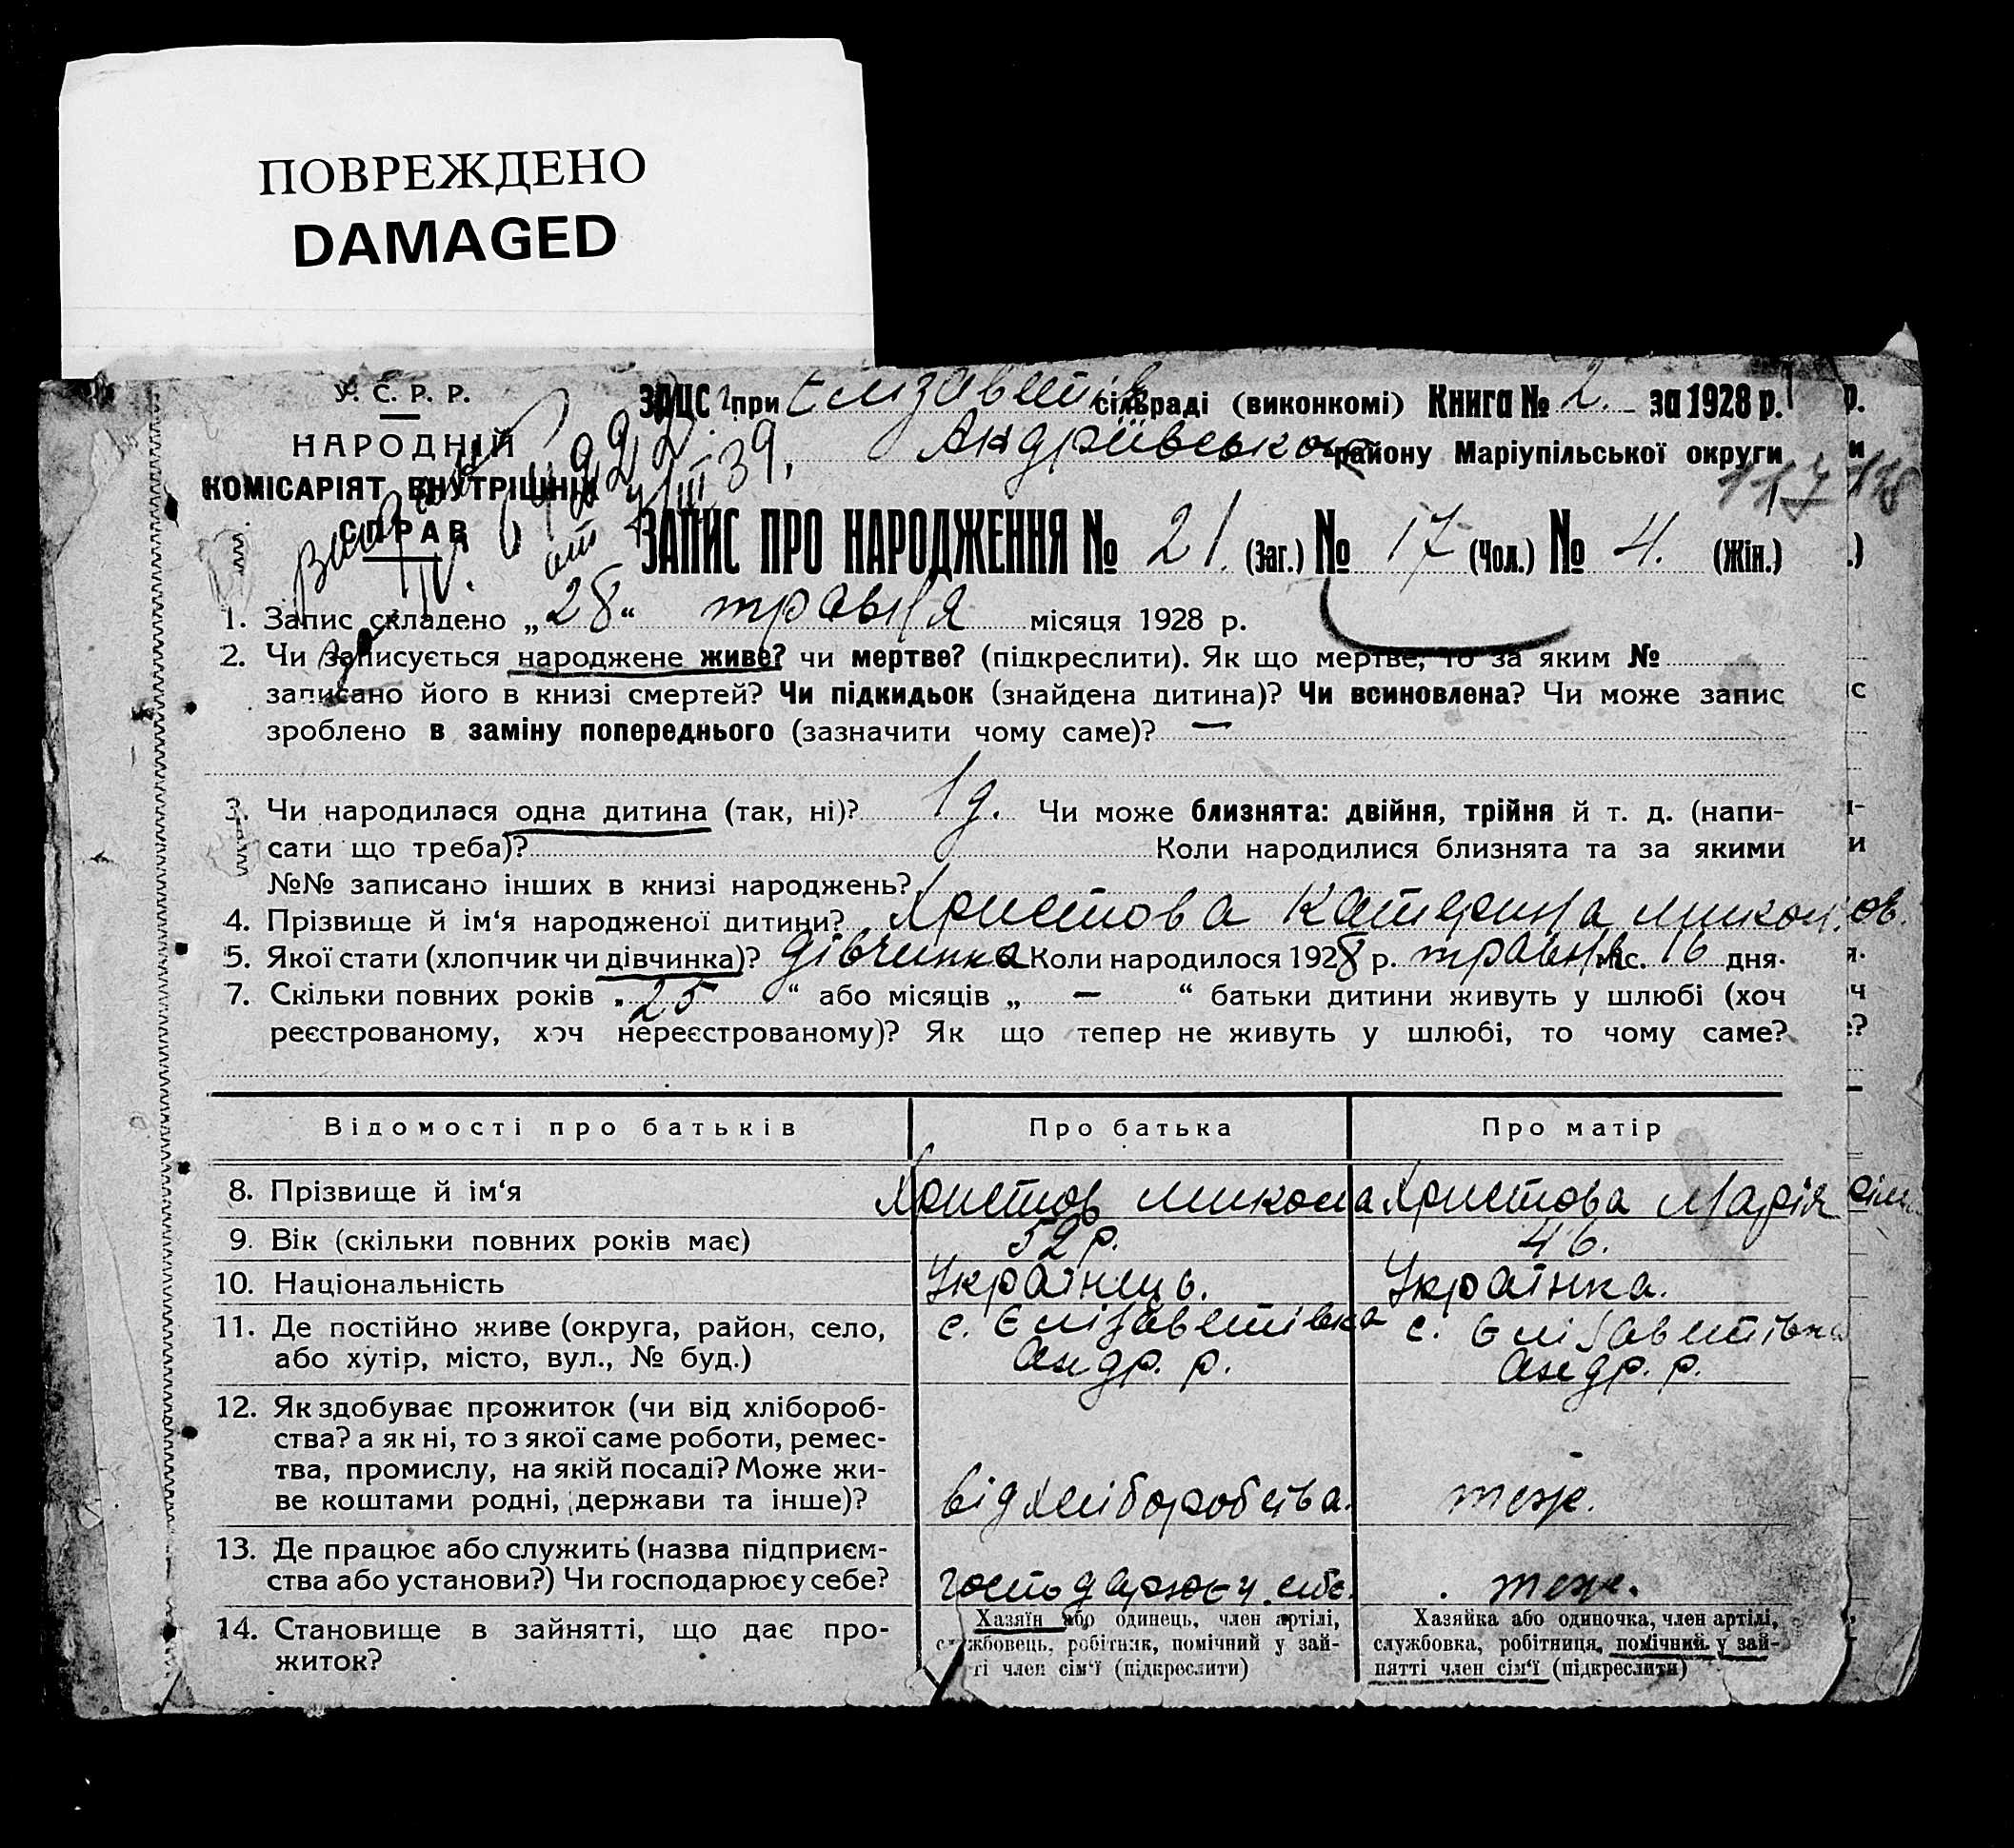 ПОВРЕЖДЕНО
DAMAGED
У. С. Р. Р.
НАРОДНІЙ
КОМІСАРІЯТ ВНУТРІШНІХ
СПРАВ
ЗАЦС при Єлізаветів сільраді (виконкомі) Книга № 2. за 1928 р.
Андріївського району Маріупільської округи
117 118
ЗАПИС ПРО НАРОДЖЕННЯ № 21 (Заг.) № 17 (Чол.) № 4. (Жін.)
1. Запис складено „28“ травня місяця 1928 р.
2. Чи записується народжене живе? чи мертве? (підкреслити). Як що мертве, то за яким №
записано його в книзі смертей? Чи підкидьок (знайдена дитина)? Чи всиновлена? Чи може запис
зроблено в заміну попереднього (зазначити чому саме)? —
3. Чи народилася одна дитина (так, ні)? 1 д. Чи може близнята: двійня, трійня й т. д. (напи-
сати що треба)? Коли народилися близнята та за якими
№№ записано інших в книзі народжень?
4. Прізвище й ім‘я народженої дитини? Христова Катерина Микол.
5. Якої стати (хлопчик чи дівчинка)? дівчинка Коли народилося 1928 р. травня міс. 16 дня.
7. Скільки повних років „ 25 “ або місяців „ — “ батьки дитини живуть у шлюбі (хоч
реєстрованому, хоч нереєстрованому)? Як що тепер не живуть у шлюбі, то чому саме?
Відомості про батьків Про батька Про матір
8. Прізвище й ім‘я Христов Микола Христова Марія
9. Вік (скільки повних років має) 52 р. 46.
10. Національність Українець. Українка.
11. Де постійно живе (округа, район, село, с. Єлізаветівка с. Єлізаветівка
або хутір, місто, вул., № буд.) Андр. р. Андр. р.
12. Як здобуває прожиток (чи від хлібороб-
ства? а як ні, то з якої саме роботи, ремес-
тва, промислу, на якій посаді? Може жи-
ве коштами родні, держави та інше)? від хліборобства. теж.
13. Де працює або служить (назва підприєм-
ства або установи?) Чи господарює у себе? господарює у себе. теж.
14. Становище в зайнятті, що дає про-
житок?
Хазяїн або одинець, член артілі,
службовець, робітник, помічний у зай-
ті член сім‘ї (підкреслити)
Хазяйка або одиночка, член артілі,
службовка, робітниця, помічний у зай-
нятті член сім‘ї (підкреслити)